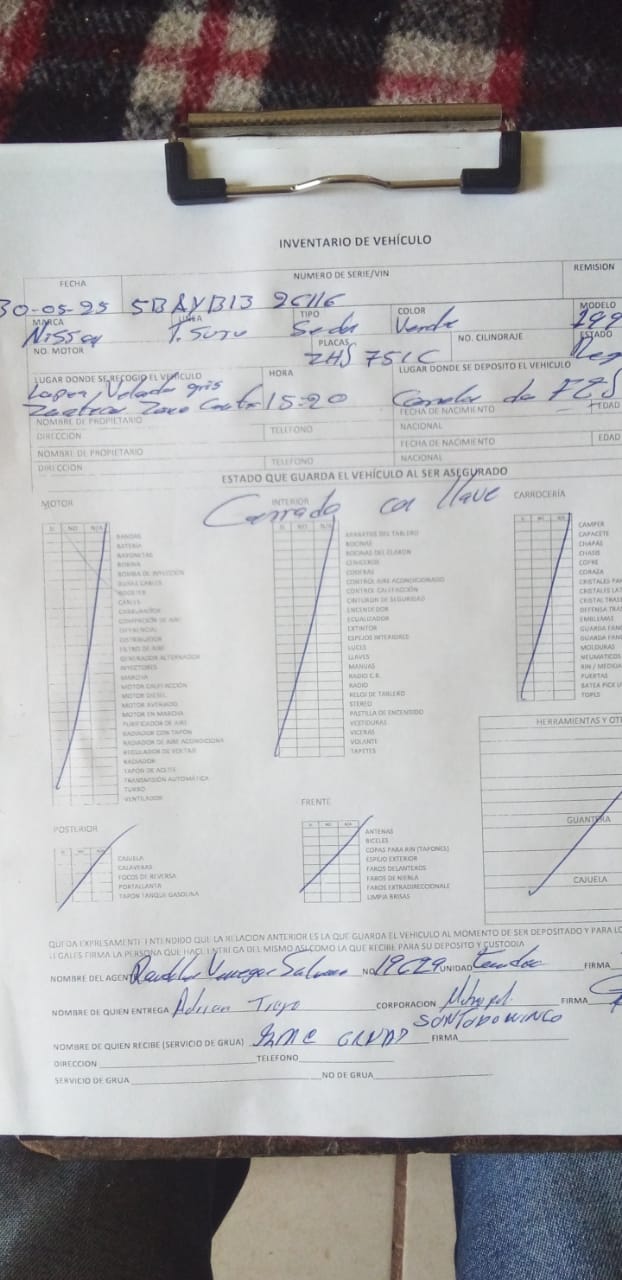 INVENTARIO DE VEHÍCULO
FECHA NUMERO DE SERIE/VIN REMISION
30-05-25 5BAYB13
MARCA LINEA TIPO COLOR MODELO
Nissan T. Suru Sedan Verde 199
NO. MOTOR PLACAS NO. CILINDRAJE ESTADO
ZHS 751C
LUGAR DONDE SE RECOGIO EL VEHÍCULO HORA LUGAR DONDE SE DEPOSITO EL VEHÍCULO
15:20
NOMBRE DE PROPIETARIO FECHA DE NACIMIENTO EDAD
DIRECCIÓN TELEFONO NACIONAL
NOMBRE DE PROPIETARIO FECHA DE NACIMIENTO EDAD
DIRECCIÓN TELEFONO NACIONAL
ESTADO QUE GUARDA EL VEHÍCULO AL SER ASEGURADO
Cerrado con llave
MOTOR
SI NO N/A
BANDAS
BATERÍA
BAYONETAS
BOBINA
BOMBA DE INYECCIÓN
BUJIAS CABLES
BOOSTER
CABLES
CARBURADOR
DIFERENCIAL
DISTRIBUIDOR
FILTRO DE AIRE
GENERADOR ALTERNADOR
INYECTORES
MARCHA
MOTOR CALEFACCIÓN
MOTOR DIESEL
MOTOR AVERIADO
MOTOR EN MARCHA
PURIFICADOR DE AIRE
RADIADOR CON TAPÓN
RADIADOR DE AIRE ACONDICIONA
REGULADOR DE VOLTAJE
RADIADOR
TAPÓN DE ACEITE
TRANSMISIÓN AUTOMÁTICA
TURBO
VENTILADOR
INTERIOR
SI NO N/A
APARATOS DEL TABLERO
BOCINAS
BOCINAS DEL CLAXON
CENICEROS
CODERAS
CONTROL AIRE ACONDICIONADO
CONTROL CALEFACCIÓN
CINTURON DE SEGURIDAD
ENCENDEDOR
ECUALIZADOR
EXTINTOR
ESPEJOS INTERIORES
LUCES
LLAVES
MANIJAS
RADIO C.B.
RADIO
RELOJ DE TABLERO
STEREO
PASTILLA DE ENCENDIDO
VESTIDURAS
VICERAS
VOLANTE
TAPETES
CARROCERÍA
SI NO N/A
CAMPER
CAPACETE
CHAPAS
CHASIS
COFRE
CORAZA
CRISTALES PA
CRISTALES LA
CRISTAL TRAS
DEFENSA TRA
EMBLEMAS
GUARDA FAN
GUARDA FAN
MOLDURAS
NEUMATICOS
RIN / MEDIDA
PUERTAS
BATEA PICK U
TOPES
HERRAMIENTAS Y OT
GUANTERA
CAJUELA
POSTERIOR
SI NO N/A
CAJUELA
CALAVERAS
FOCOS DE REVERSA
PORTALLANTA
TAPON TANQUE GASOLINA
FRENTE
SI NO N/A
ANTENAS
BICELES
COPAS PARA RIN (TAPONES)
ESPEJO EXTERIOR
FAROS DELANTEROS
FAROS DE NIEBLA
FAROS EXTRADIRECCIONALE
LIMPIA BRISAS
QUEDA EXPRESAMENTE ENTENDIDO QUE LA RELACION ANTERIOR ES LA QUE GUARDA EL VEHICULO AL MOMENTO DE SER DEPOSITADO Y PARA LO
LEGALES FIRMA LA PERSONA QUE HACE ENTREGA DEL MISMO ASI COMO LA QUE RECIBE PARA SU DEPOSITO Y CUSTODIA
NOMBRE DEL AGENTE NO. 19629 UNIDAD FIRMA
NOMBRE DE QUIEN ENTREGA Adrian Trejo CORPORACION FIRMA
SANTO DOMINGO
NOMBRE DE QUIEN RECIBE (SERVICIO DE GRUA) FIRMA
DIRECCION TELEFONO
SERVICIO DE GRUA NO DE GRUA